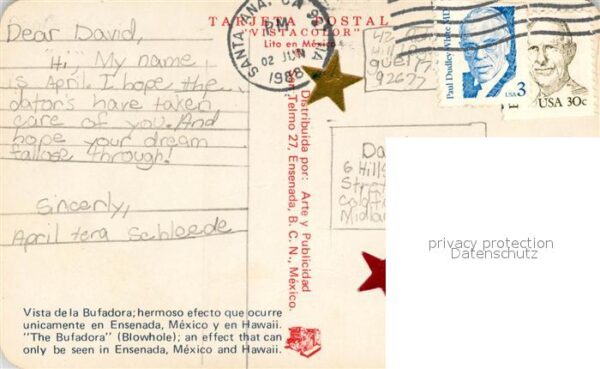 TARJETA POSTAL
"VISTACOLOR"
Lito en México
Dear David,
"Hi" My name
is April. I hope the
dator's have taken
care of you. And
hope your dream
fallose through!
Sincerly,
April tera Schloede
SANTA ANA, CA
PM
02 JUN
1988
Paul Dudley White MD
USA 3
USA 30c
92677
Da
6 Hills
Midla
Distribuida por: Arte y Publicidad
Telmo 27. Ensenada, B. C. N., México.
privacy protection
Datenschutz
Vista de la Bufadora; hermoso efecto que ocurre
unicamente en Ensenada, México y en Hawaii.
"The Bufadora" (Blowhole); an effect that can
only be seen in Ensenada, México and Hawaii.